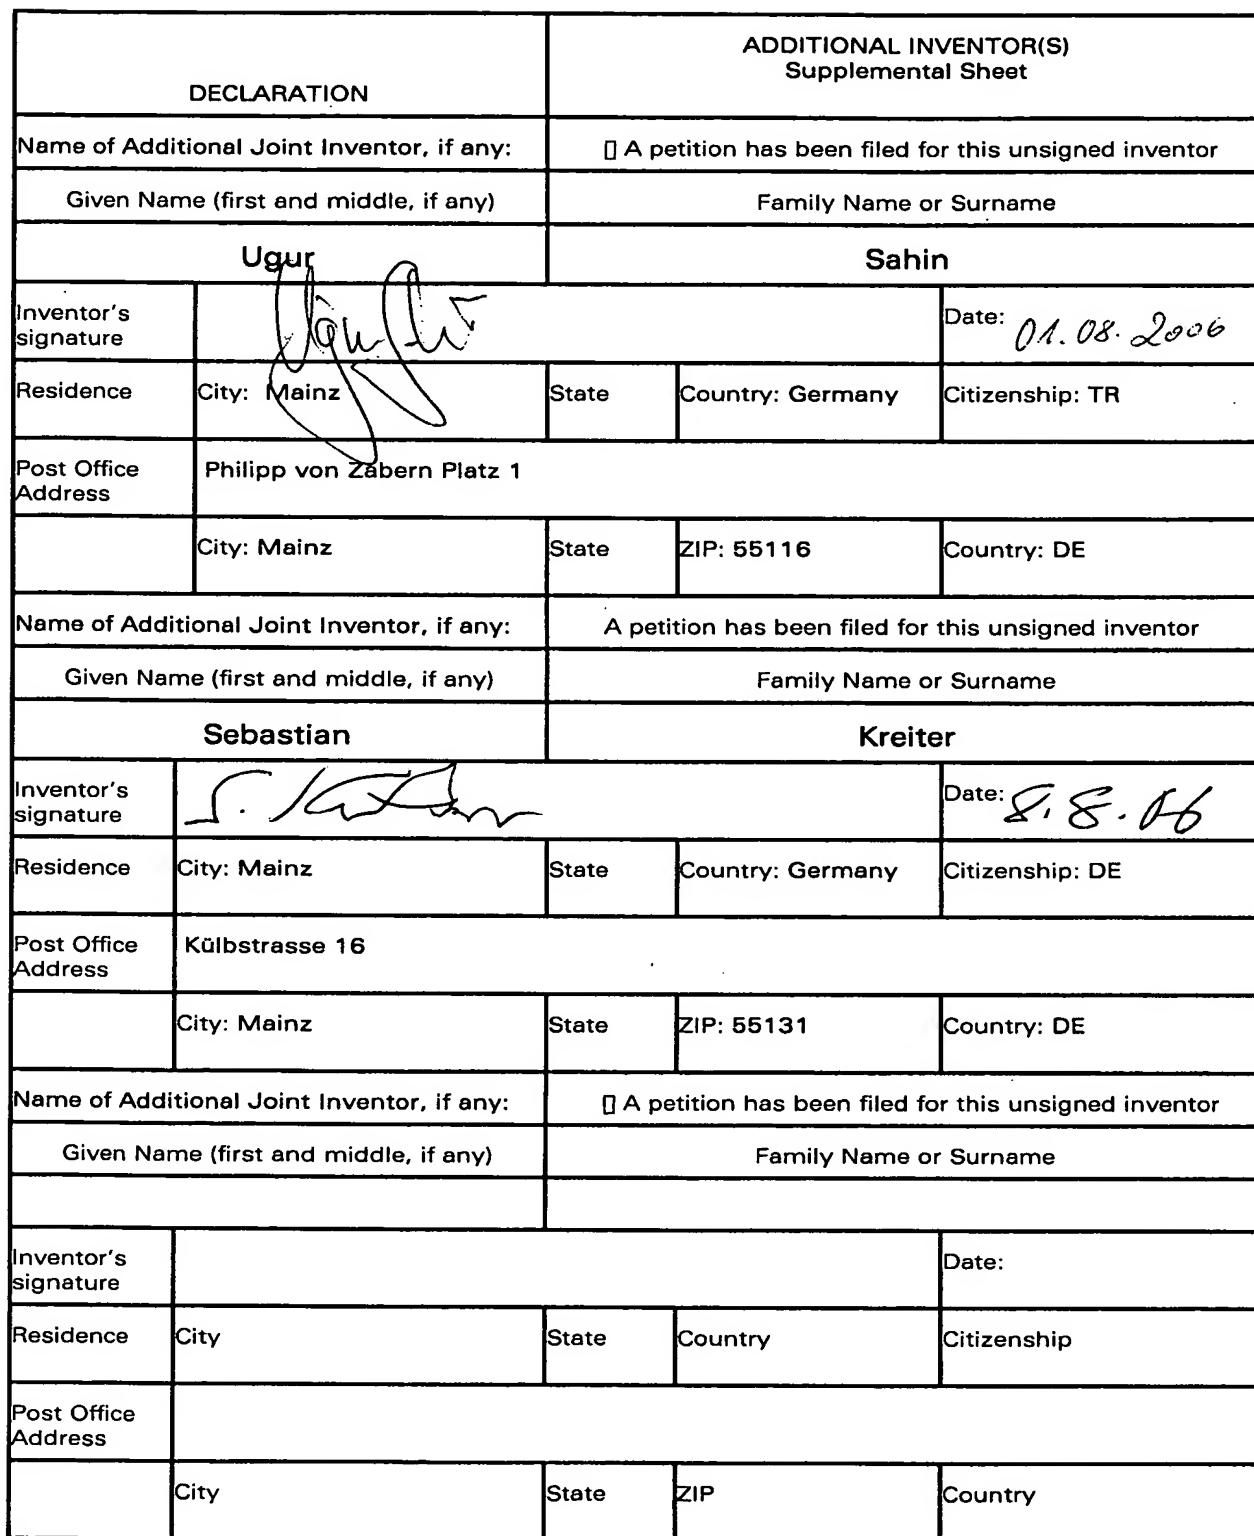 DECLARATION
ADDITIONAL INVENTOR(S)
Supplemental Sheet
Name of Additional Joint Inventor, if any:
▯ A petition has been filed for this unsigned inventor
Given Name (first and middle, if any)
Family Name or Surname
Ugur
Sahin
Inventor's
signature
Date: 01.08.2006
Residence
City: Mainz
State
Country: Germany
Citizenship: TR
Post Office
Address
Philipp von Zabern Platz 1
City: Mainz
State
ZIP: 55116
Country: DE
Name of Additional Joint Inventor, if any:
A petition has been filed for this unsigned inventor
Given Name (first and middle, if any)
Family Name or Surname
Sebastian
Kreiter
Inventor's
signature
S.
Date: 8.8.06
Residence
City: Mainz
State
Country: Germany
Citizenship: DE
Post Office
Address
Külbstrasse 16
City: Mainz
State
ZIP: 55131
Country: DE
Name of Additional Joint Inventor, if any:
▯ A petition has been filed for this unsigned inventor
Given Name (first and middle, if any)
Family Name or Surname
Inventor's
signature
Date:
Residence
City
State
Country
Citizenship
Post Office
Address
City
State
ZIP
Country